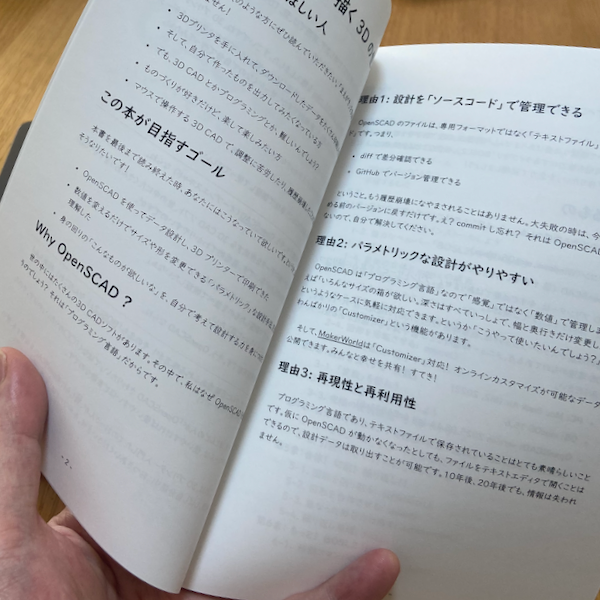 描く3Dの
ほしい人
のような方にぜひ読んでいただきたい
3Dプリンタを手に入れて、ダウンロードしたデータを
そして、自分で作ったものを出力してみたくなっている方
でも、3D CADとかプログラミングとか、難しいんでしょう?
ものづくりが好きだけど、楽して楽しみたい方
マウスで操作する 3D CAD で、調整に苦労したり、履歴崩壊
この本が目指すゴール
本書を最後まで読み終えた時、あなたにはこうなっていて欲しいです。
そうなりたいです!
OpenSCAD を使ってデータ設計し、3D プリンターで印刷できた
数値を変えるだけでサイズや形を変更できる「パラメトリック」な設計を
理解した
身の回りの「こんなものが欲しいな」を、自分で考えて設計する力を身に
Why OpenSCAD ?
世の中にはたくさんの3D CADソフトがあります。その中で、私はなぜ OpenSCAD
うのでしょう? それは「プログラミング言語」だからです。
- 2 -
理由1: 設計を「ソースコード」で管理できる
OpenSCAD のファイルは、専用フォーマットではなく「テキストファイル」
です。つまり、
• diff で差分確認できる
• GitHub でバージョン管理できる
ということ。もう履歴崩壊になやまされることはありません。大失敗の時は、今
める前のバージョンに戻すだけです。え? commit し忘れ? それは OpenSCAD
ないので、自分で解決してください。
理由2: パラメトリックな設計がやりやすい
OpenSCAD は「プログラミング言語」なので「感覚」ではなく「数値」で管理しま
えば「いろんなサイズの箱が欲しい。深さはすべていっしょで、幅と奥行きだけ変更し
というようなケースに気軽に対応できます。というか「こうやって使いたいんでしょう?」
わんばかりの「Customizer」という機能があります。
そして、MakerWorldは「Customizer」対応! オンラインカスタマイズが可能なデータ
公開できます。みんなと幸せを共有! すてき!
理由3: 再現性と再利用性
プログラミング言語であり、テキストファイルで保存されていることはとても素晴らしいこと
です。仮に OpenSCAD が動かなくなったとしても、ファイルをテキストエディタで開くことは
できるので、設計データは取り出すことが可能です。10年後、20年後でも、情報は失われ
ません。